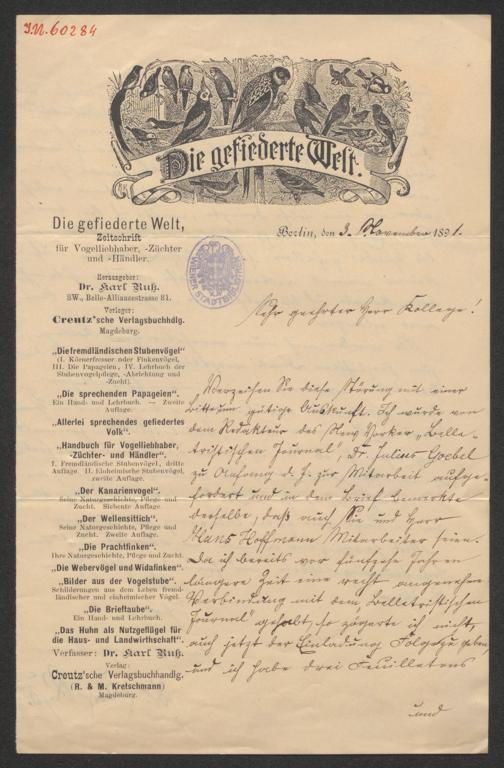 J.N. 60284
Die gefiederte Welt.
Die gefiederte Welt,
Zeitschrift
für Vogelliebhaber, -Züchter
und -Händler.
Herausgeber:
Dr. Karl Ruß.
SW., Belle-Alliancestrasse 81.
Verleger:
Creutz'sche Verlagsbuchhdlg.
Magdeburg.
„Die fremdländischen Stubenvögel“
(I. Körnerfresser oder Finkenvögel,
III. Die Papageien, IV. Lehrbuch der
Stubenvogelpflege, -Abrichtung und
-Zucht).
„Die sprechenden Papageien“.
Ein Hand- und Lehrbuch. — Zweite
Auflage.
„Allerlei sprechendes gefiedertes
Volk“.
„Handbuch für Vogelliebhaber,
-Züchter- und Händler“.
I. Fremdländische Stubenvögel, dritte
Auflage. II. Einheimische Stubenvögel,
zweite Auflage.
„Der Kanarienvogel“.
Seine Naturgeschichte, Pflege und
Zucht. Siebente Auflage.
„Der Wellensittich“.
Seine Naturgeschichte, Pflege und
Zucht. Zweite Auflage.
„Die Prachtfinken“.
Ihre Naturgeschichte, Pflege und Zucht.
„Die Webervögel und Widafinken“.
„Bilder aus der Vogelstube“.
Schilderungen aus dem Leben fremd-
ländischer und einheimischer Vögel.
„Die Brieftaube“.
Ein Hand- und Lehrbuch.
„Das Huhn als Nutzgeflügel für
die Haus- und Landwirthschaft“.
Verfasser: Dr. Karl Ruß.
Verlag:
Creutz'sche Verlagsbuchhandlg.
(R. & M. Kretschmann)
Magdeburg.
Berlin, den 3. November 1891.
WIENER STADTBIBLIOTHEK
Sehr geehrter Herr Kollege!
Verzeihen Sie diese Störung mit einer
Bitte um gütige Auskunft. Ich wurde von
dem Redakteur des New Yorker „Belle-
tristischen Journal, Dr. Julius Goebel
zu Anfang d. J. zur Mitarbeit aufge-
fordert und in dem Brief bemerkte
derselbe, daß auch Sie und Herr
Hans Hoffmann Mitarbeiter seien.
Da ich bereits vor fünfzehn Jahren
längere Zeit eine recht angenehme
Verbindung mit dem Belletristischen
Journal gehabt, so zögerte ich nicht,
auch jetzt der Einladung Folge zu geben,
und ich habe drei Feuilletons
und